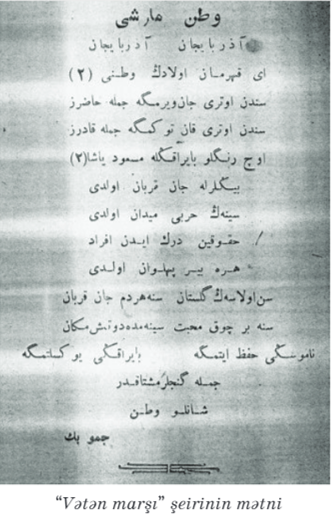 وطن مارشی
آذربایجان آذربایجان
ای قهرمان اولادڭ وطنی (۲)
سندن اوتری جان‌ویرمگه جمله حاضرز
سندن اوتری قان توکمگه جمله قادرز
اوچ رنگلو بایراقڭله مسعود یاشا(۲)
بیڭلرله جان قربان اولدی
سینه‌ڭ حربی میدان اولدی
حقوقین درك ایدن افراد
هره بیر پهلوان اولدی
سن‌اولاسه‌ڭ گلستان سنه‌هردم جان قربان
سنه بر چوق محبت سینه‌مده‌دوتمش‌مکان
ناموسڭی حفظ ایتمگه بایراقڭی یوکسلتمگه
جمله گنجلرمشتاقدر
شانلو وطن
جمو بك
“Vətən marşı” şeirinin mətni